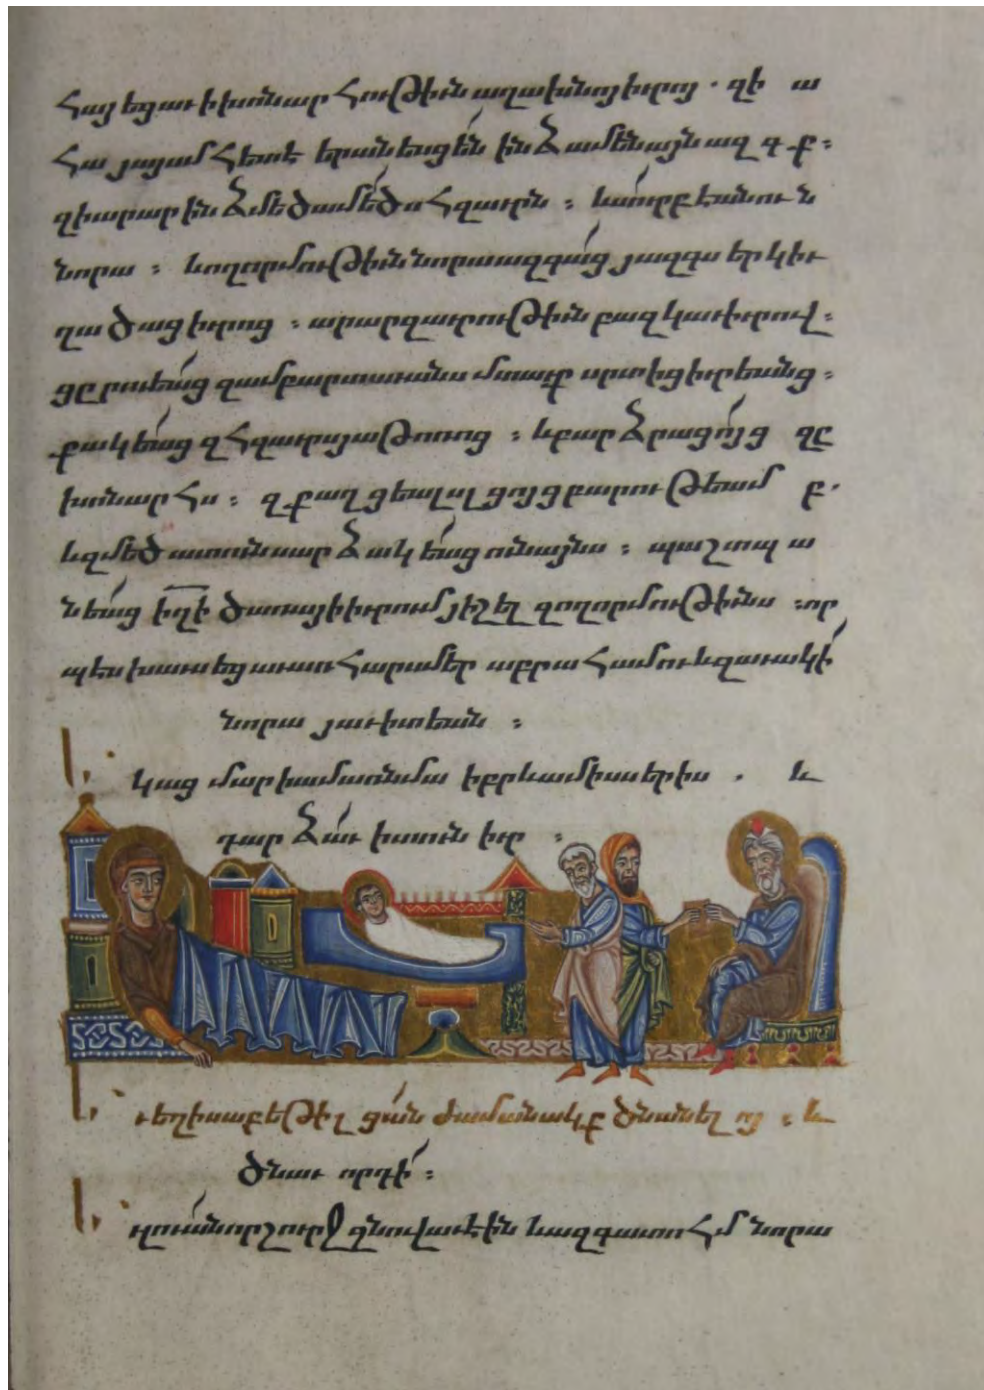 Հայեցաւ ի խոնարհութիւն աղախնոյ իւրոյ . զի ա
հա յայսմհետէ երանեսցեն ինձ ամենայն ազգք ։
զի արար ինձ մեծամեծս հզաւրն ։ և սուրբ է անուն
նորա ։ և ողորմութիւն նորա ազգաց յազգս երկիւ
ղածաց իւրոց ։ արար զաւրութիւն բազկաւ իւրով ։
ցրուեաց զամբարտաւանս մտաւք սրտից իւրեանց ։
քակեաց զհզաւրս յաթոռոց ։ և բարձրացոյց զ
խոնարհս ։ զքաղցեալս լցոյց բարութեամբ .
և զմեծատունս արձակեաց ունայնս ։ պաշտպա
նեաց իղի ծառայի իւրում յիշել զողորմութիւնս ։ որ
պէս խաւսեցաւ առ հարս մեր աբրահամու և զաւակի
նորա յաւիտեան ։
Եկաց մարիամ առ նմա իբրև ամիսս երիս . և
դարձաւ ի տուն իւր ։
Եւ եղիսաբեթի լցան ժամանակք ծնանելոյ ։ և
ծնաւ որդի ։
Եւ լուան որ շուրջ զնովաւ էին և ազգատոհմ նորա